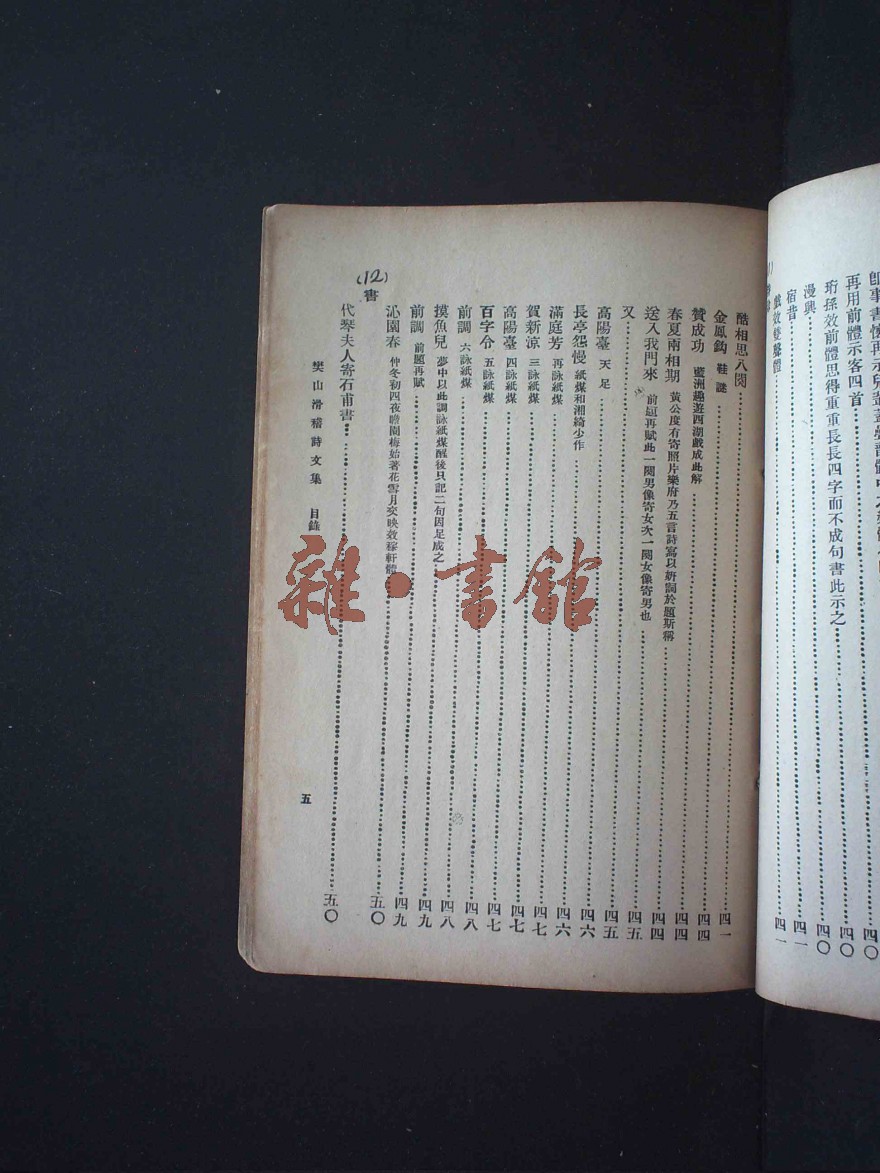 再用前體示客四首 四〇
珩孫效前體思得重重長長四字而不成句書此示之 四〇
漫興 四一
宿昔 四一
戲效雙聲體 四一
酷相思八闋 四一
金鳳鈎 鞋謎 四四
贊成功 藍洲趣遊西湖戲成此解 四四
春夏兩相期 黃公度有寄照片樂府乃五言詩寫以姸調於題斯稱 四四
送入我門來 前題再賦此一闋男像寄女次一闋女像寄男也 四四
又 四五
高陽臺 天足 四五
長亭怨慢 紙煤和湘綺少作 四六
滿庭芳 再詠紙煤 四六
賀新涼 三詠紙煤 四七
高陽臺 四詠紙煤 四七
百字令 五詠紙煤 四七
前調 六詠紙煤 四八
摸魚兒 夢中以此調詠紙煤醒後只記二句因足成之 四八
前調 前題再賦 四九
沁園春 仲冬初四夜瞻園梅始著花雪月交映效稼軒體 四九
(12)
書 五〇
代琴夫人寄石甫書 五〇
樊山滑稽詩文集 目錄
五
雜·書館